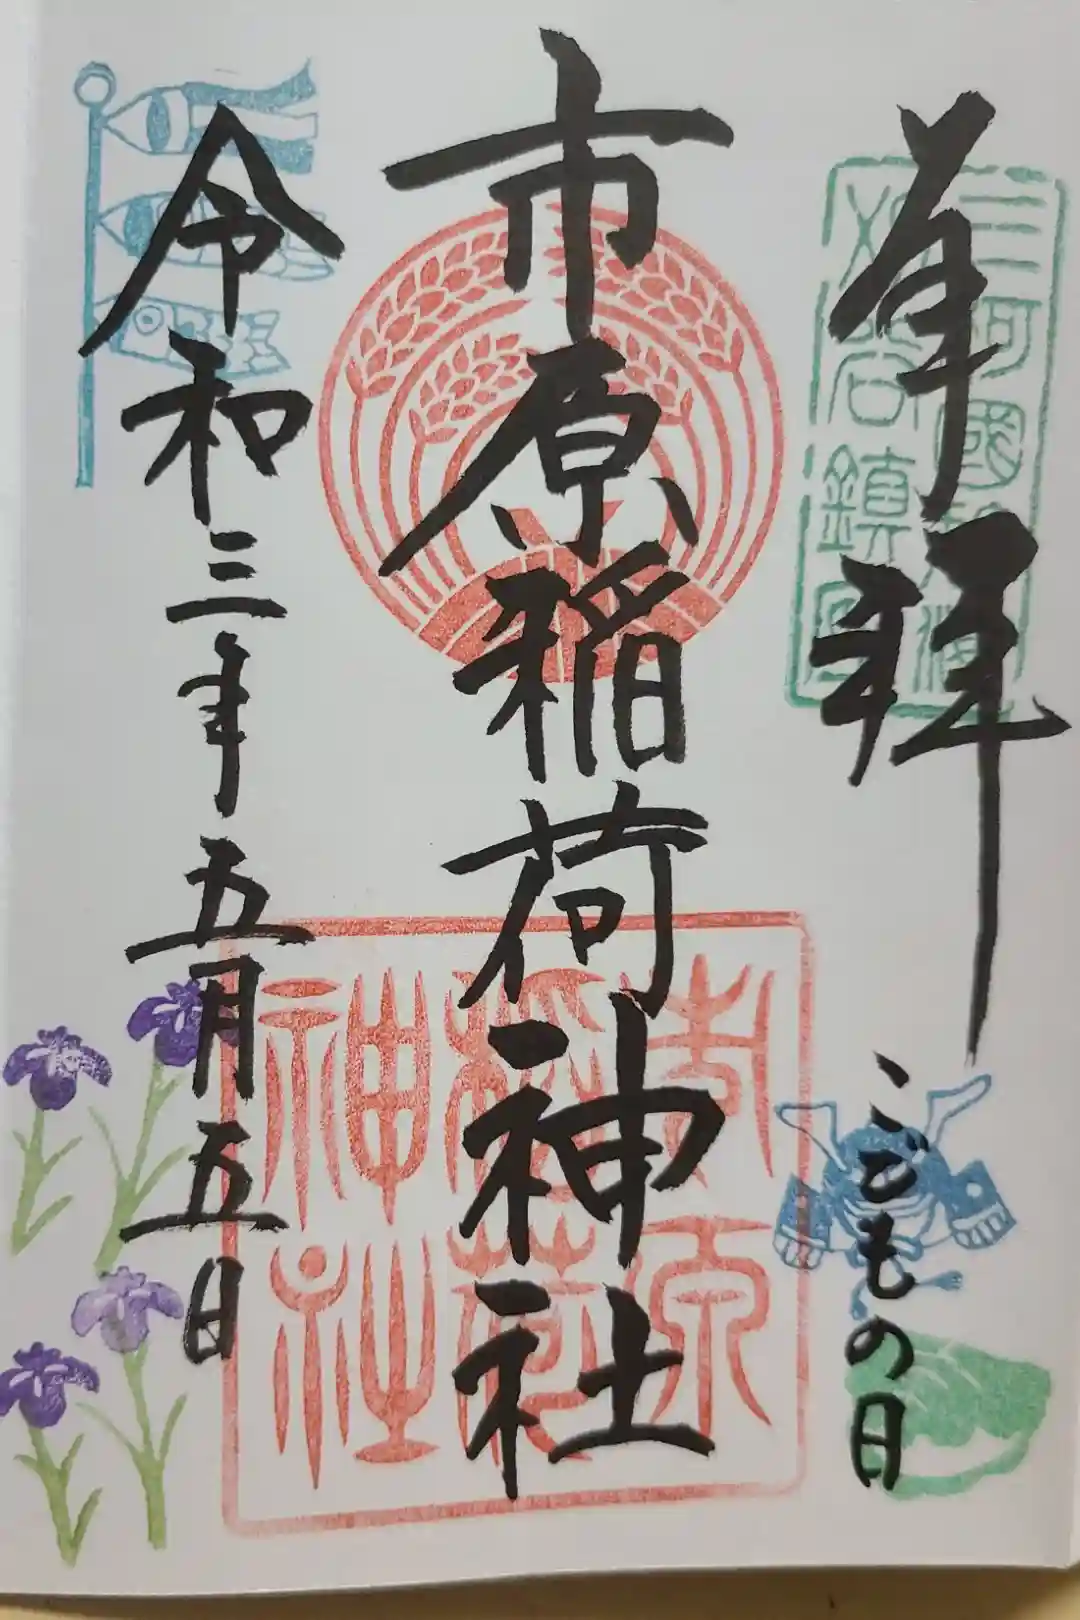 奉拝
こどもの日
市原稲荷神社
市原稲荷神社
令和三年五月五日